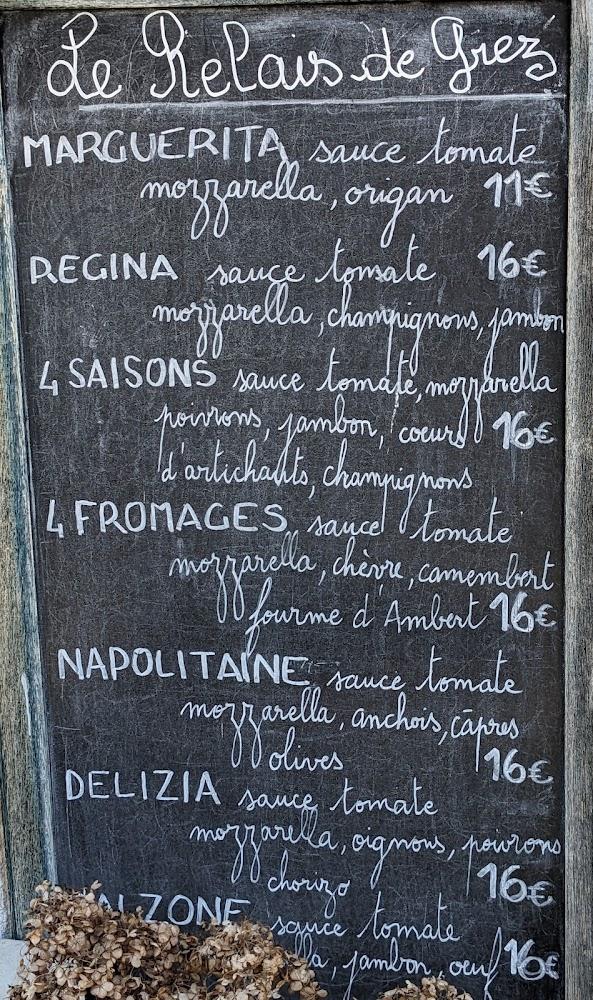 Le Relais de Grez
MARGUERITA sauce tomate
mozzarella, origan 11€
REGINA sauce tomate 16€
mozzarella, champignons, jambon
4 SAISONS sauce tomate, mozzarella
poivrons, jambon, coeurs 16€
d'artichauts, champignons
4 FROMAGES sauce tomate
mozzarella, chèvre, camembert
fourme d'Ambert 16€
NAPOLITAINE sauce tomate
mozzarella, anchois, câpres
olives 16€
DELIZIA sauce tomate
mozzarella, oignons, poivrons
chorizo 16€
ALZONE sauce tomate
la, jambon, oeuf 16€